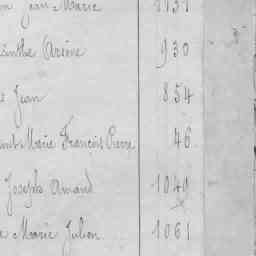 Jean Marie
Arsène 930
Jean 854
Marie François Pierre 46
Joseph Amand 1049
Marie Julien 1061